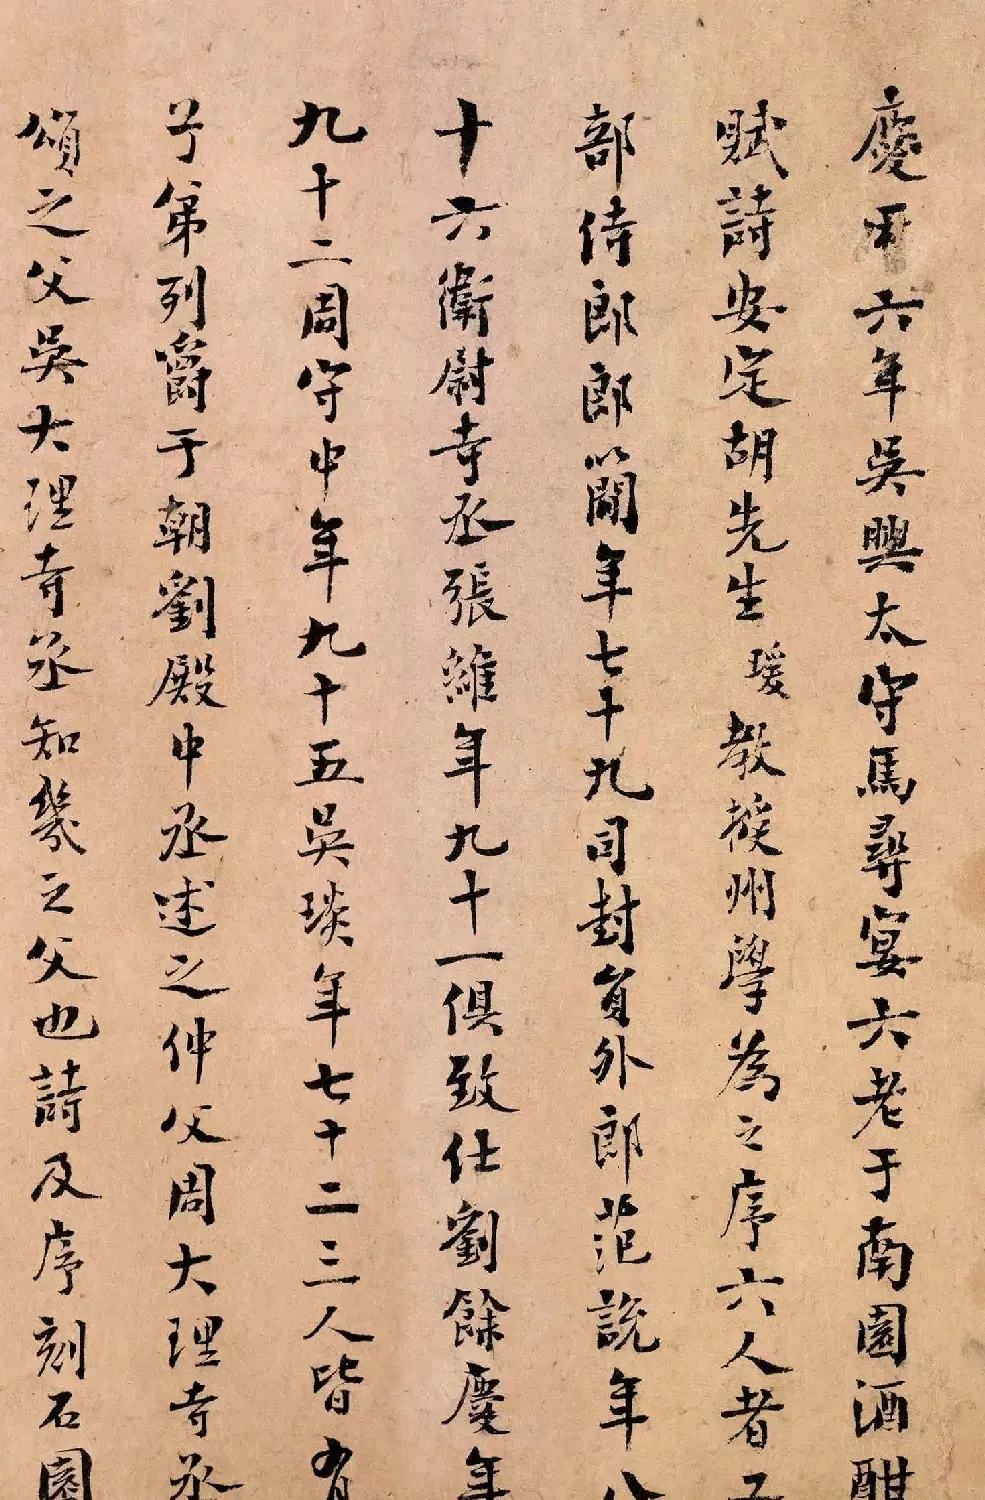 慶曆六年吳興太守馬尋宴六老于南園酒酣
賦詩安定胡先生瑗教授州學為之序六人者工
部侍郎郎簡年七十九司封員外郎范說年八
十六衛尉寺丞張維年九十一俱致仕劉餘慶年
九十二周守中年九十五吳琰年七十二三人皆有
子弟列爵于朝劉殿中丞述之仲父周大理寺丞
頌之父吳大理寺丞知幾之父也詩及序刻石園